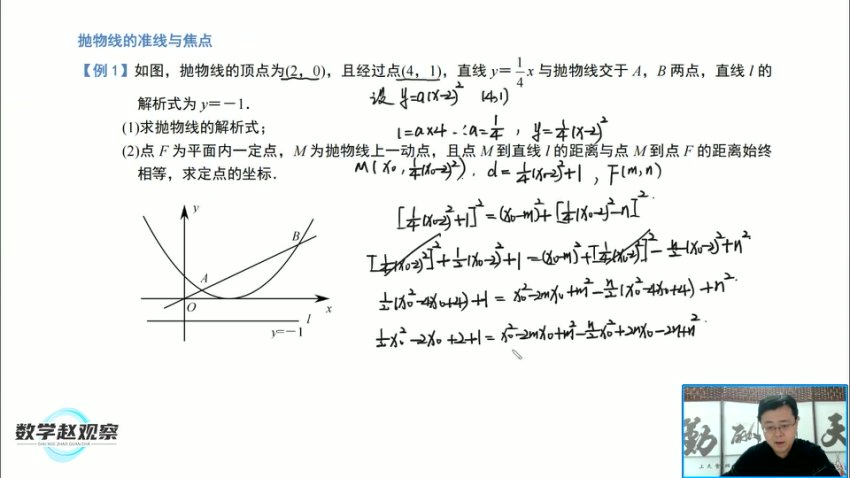 抛物线的准线与焦点
【例1】如图，抛物线的顶点为(2，0)，且经过点(4，1)，直线 y=1/4x 与抛物线交于 A，B 两点，直线 l 的
解析式为 y=-1．
设 y=a(x-2)² (4,1)
(1)求抛物线的解析式；
1=a×4 ∴a=1/4 , y=1/4(x-2)²
(2)点 F 为平面内一定点，M 为抛物线上一动点，且点 M 到直线 l 的距离与点 M 到点 F 的距离始终
相等，求定点的坐标．
M(x₀, 1/4(x₀-2)²). d=1/4(x₀-2)²+1 , F(m,n)
[1/4(x₀-2)²+1]²=(x₀-m)²+[1/4(x₀-2)²-n]²
[1/4(x₀-2)²]²+1/2(x₀-2)²+1=(x₀-m)²+[1/4(x₀-2)²]²-n/2(x₀-2)²+n²
1/2(x₀²-4x₀+4)+1=x₀²-2mx₀+m²-n/2(x₀²-4x₀+4)+n²
1/2x₀²-2x₀+2+1=x₀²-2mx₀+m²-n/2x₀²+2nx₀-2n+n²
y
B
A
O
x
l
y=-1
数学赵观察
勤
天